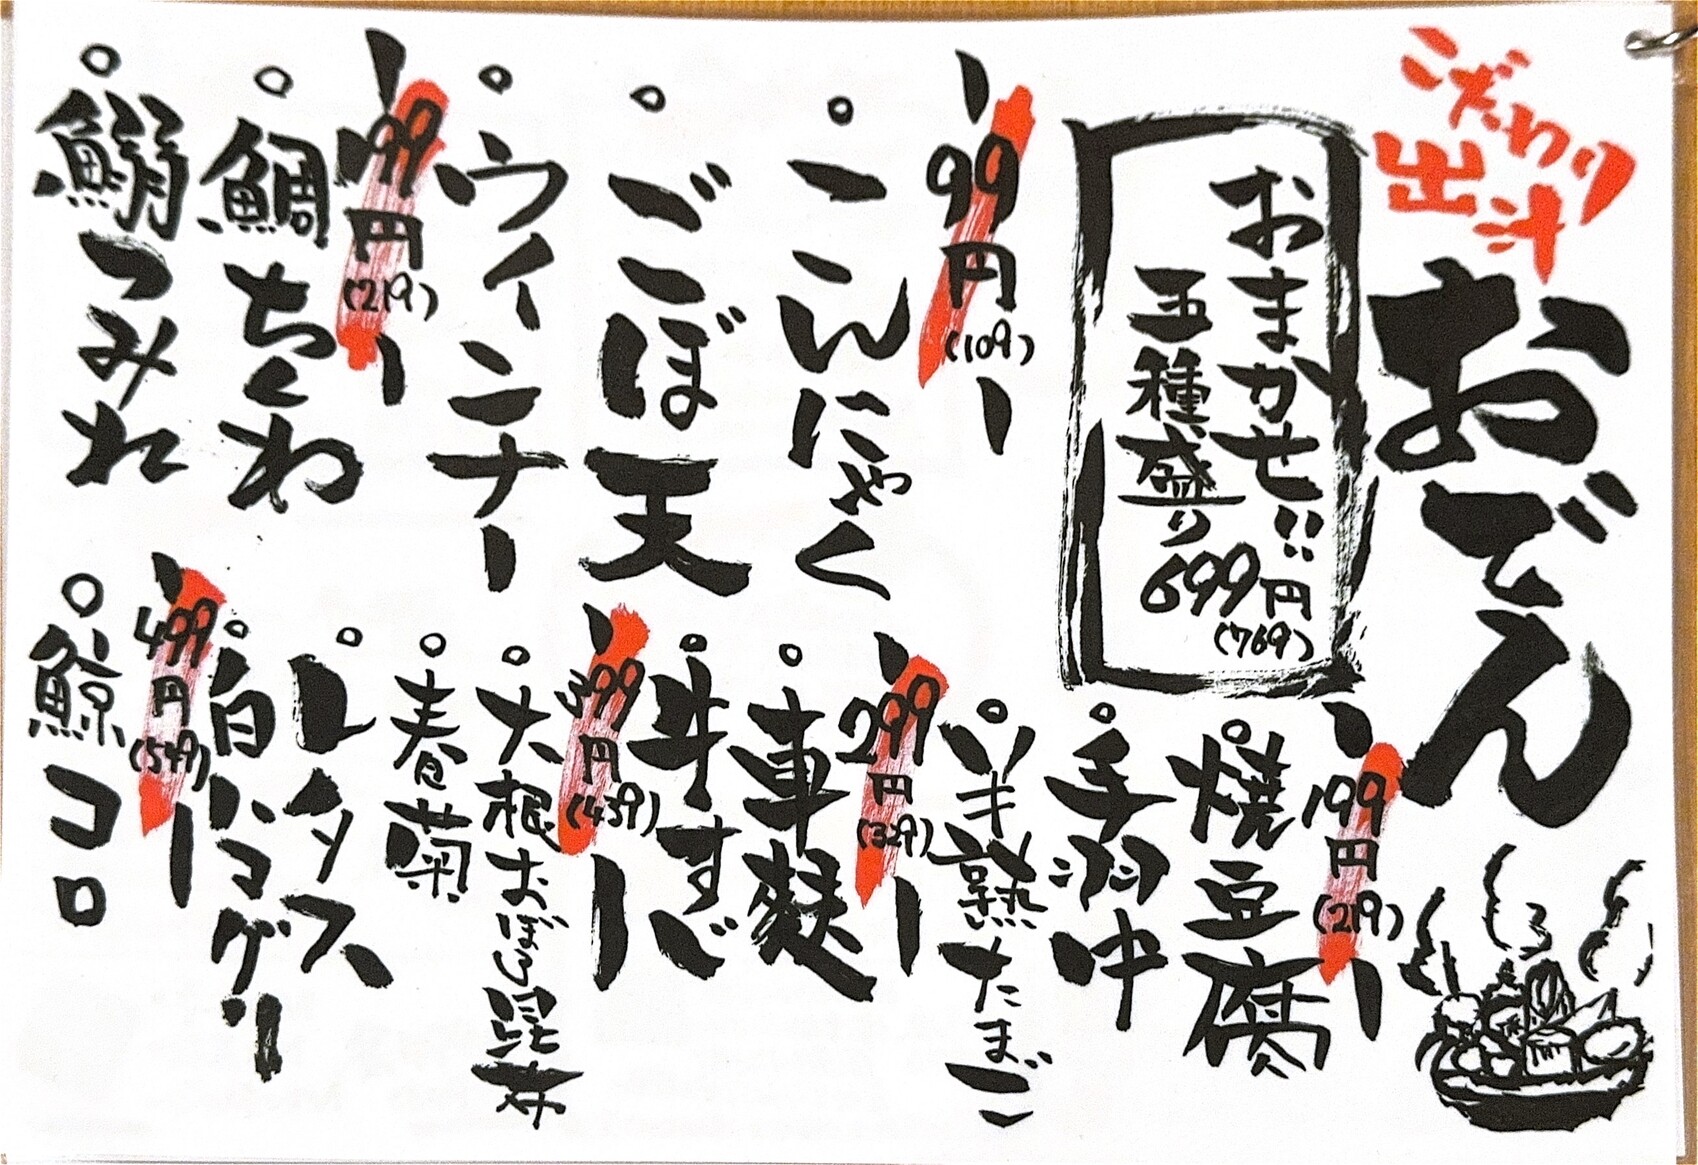 こだわり
出汁
おでん
おまかせ!!
五種盛り
699円
(769)
99円
(109)
こんにゃく
ごごぼ天
ウインナー
199円
(219)
鯛ちくわ
鰯つみれ
199円
(219)
焼豆腐
手羽中
半熟たまご
299円
(329)
車麩
牛すじ
399円
(439)
大根おぼろ昆布
春菊
レタス
白ハマグリ
499円
(549)
鯨コロ